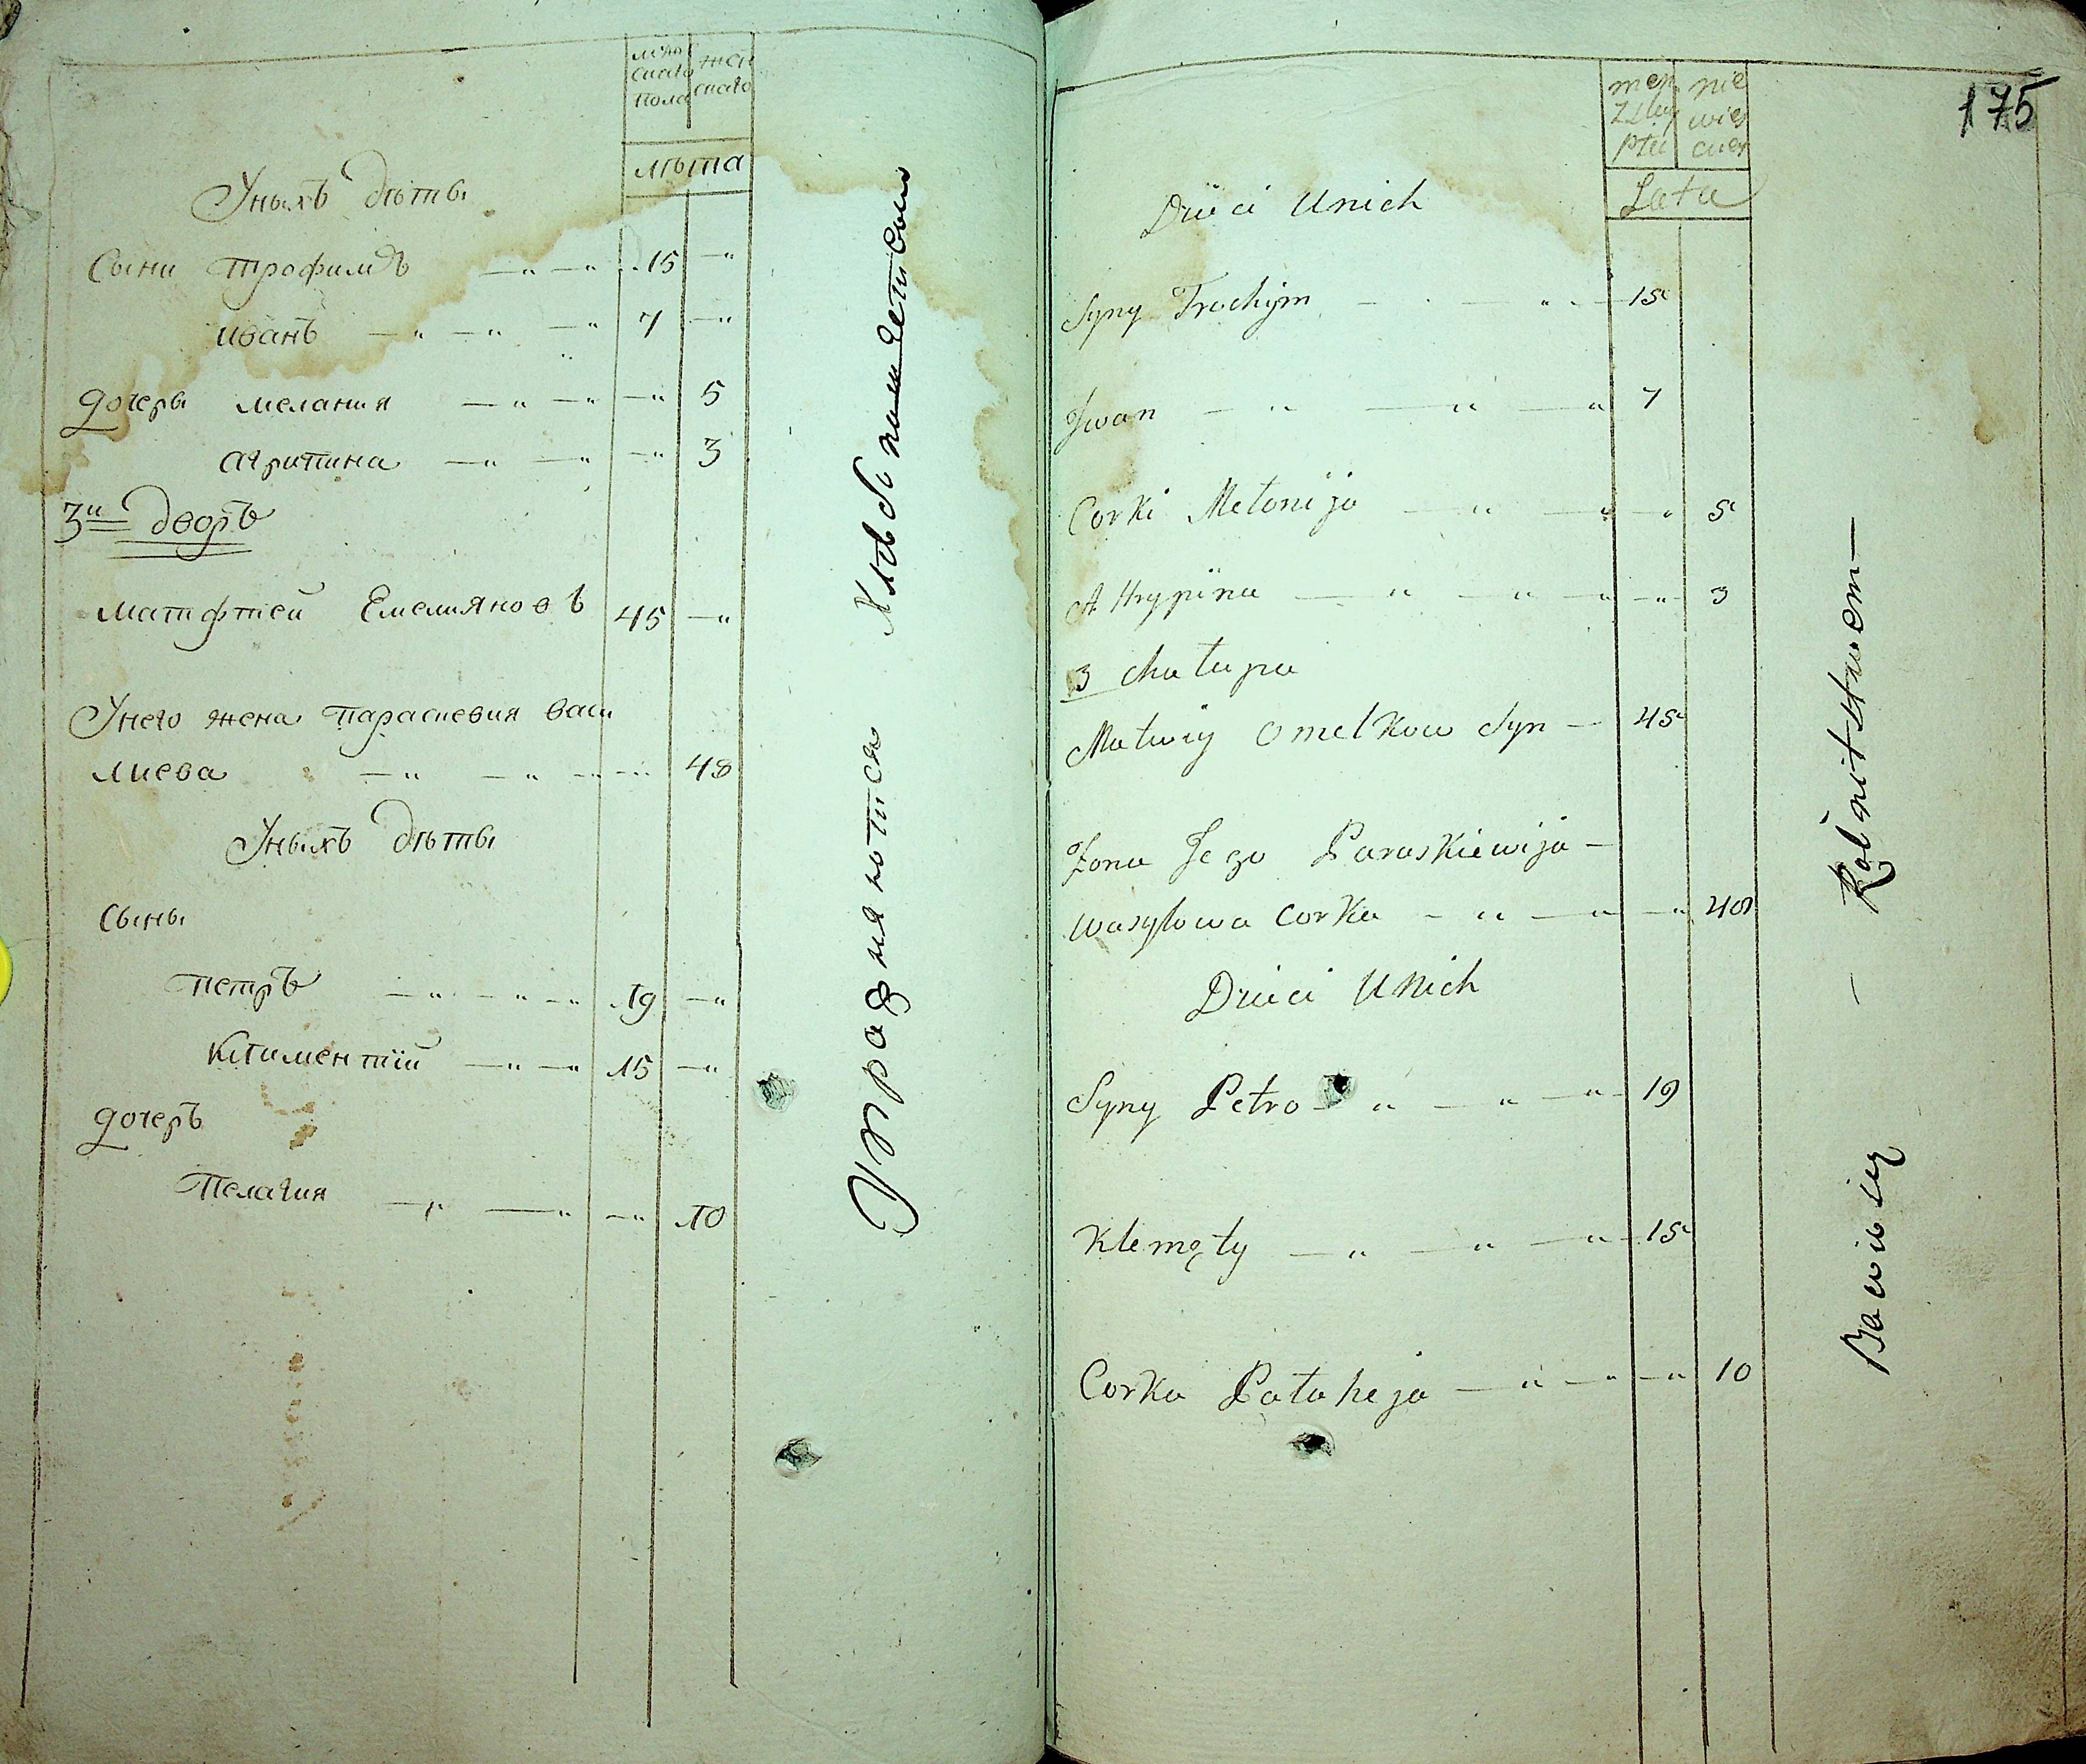 муж
скаго
пола
жен
скаго
лѣта
Уныхъ дѣты
Сыни трофимъ —„ —„ 15 —„
иванъ —„ —„ —„ 7 —„
дочеры мелания —„ —„ —„ 5
агрипина —„ —„ —„ 3
3й дворъ
матфтей Емелияновъ 45 —„
Унего жена параскевия васи
лиева —„ —„ —„ 48
Уныхъ дѣты
Сыны
петръ —„ —„ —„ 19 —„
климентий —„ —„ 15 —„
дочеръ
Пелагия —„ —„ —„ 10
Упражняются Хлѣбопашеством
175
męz
ptci
nie
wies
Lata
Dzieci Unich
Syny Trochym — „ 15
Iwan — „ — „ — „ 7
Corki Mełanija — „ — „ — „ 5
A Hrypina — „ — „ — „ — „ 3
3 chałupa
Matwiy Omelkow Syn — 45
Zona Jego Paraskiewija —
Wasylowa corka — „ — „ — „ 48
Dzieci Unich
Syny Petro — „ — „ — „ 19
Klemęty — „ — „ — „ 15
Corka Pałaheja — „ — „ — „ 10
Bawią się — Rolnitstwem —